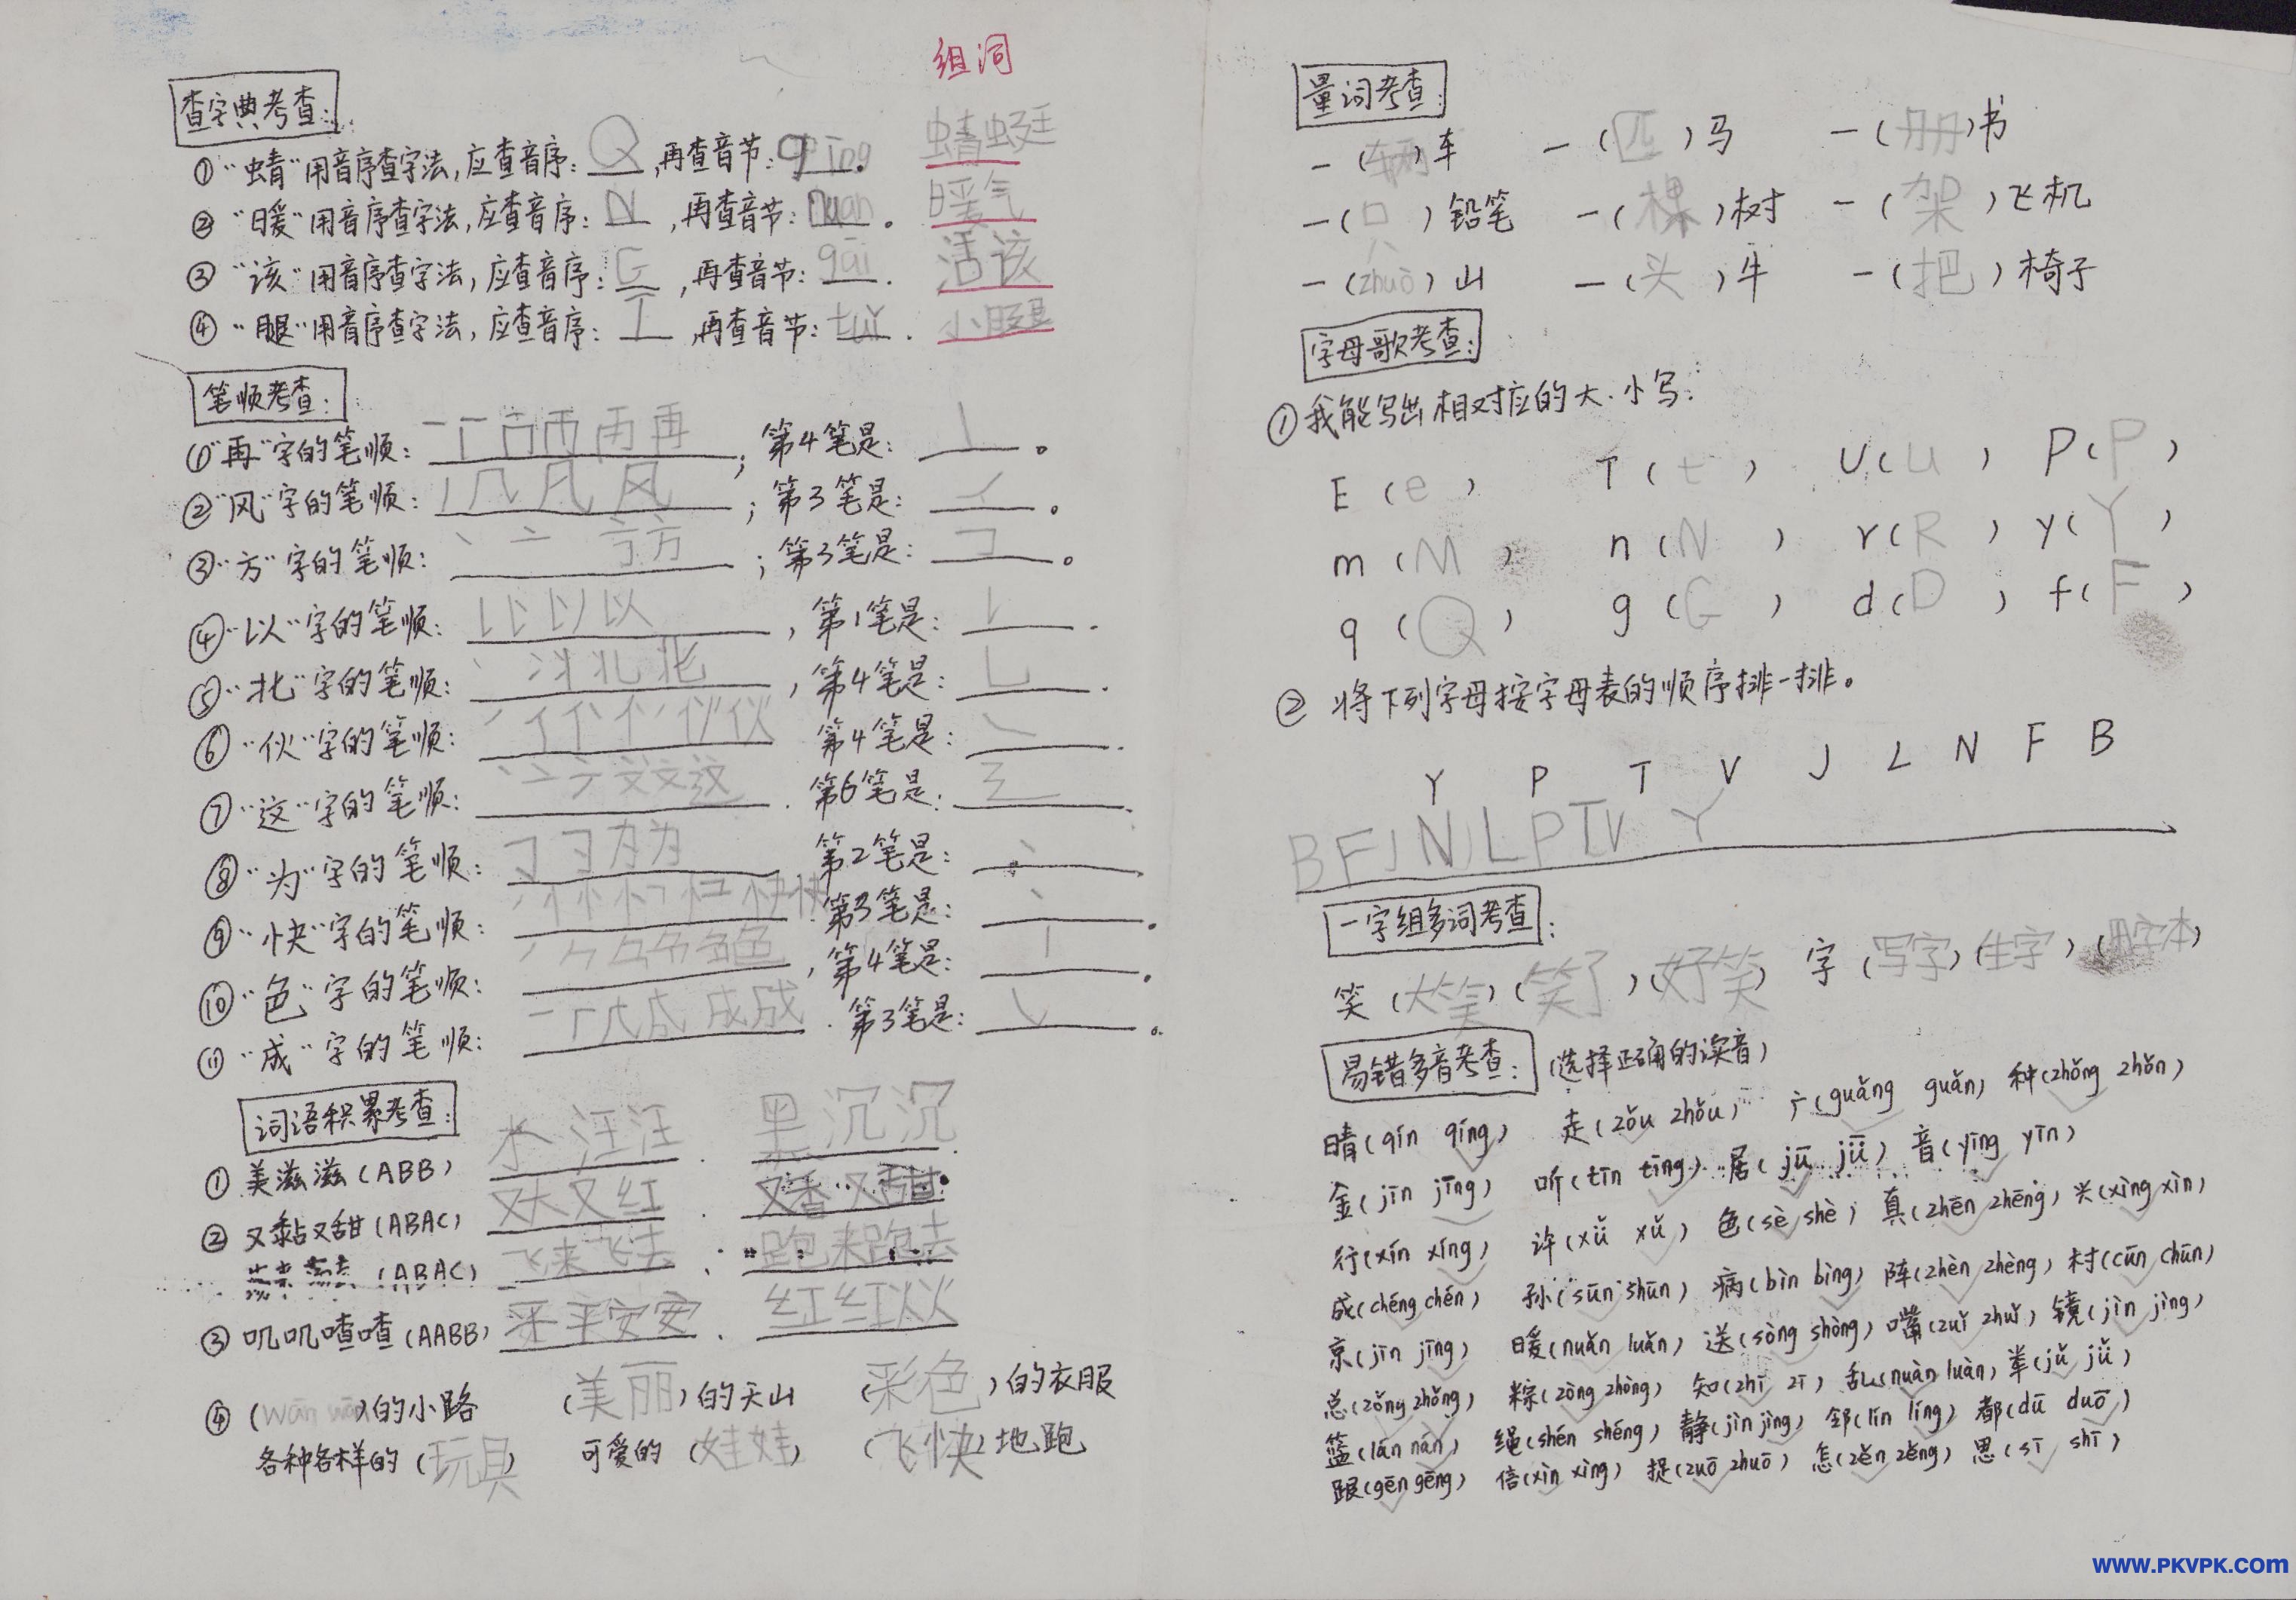 组词
查字典考查:
①"蜻"用音序查字法,应查音序: Q ,再查音节: qīng 。 蜻蜓
②"暖"用音序查字法,应查音序: N ,再查音节: nuan 。 暖气
③"该"用音序查字法,应查音序: G ,再查音节: gāi . 活该
④"腿"用音序查字法,应查音序: T ,再查音节: tuǐ . 小腿
笔顺考查:
①"再"字的笔顺: ; 第4笔是: 丨 。
②"风"字的笔顺: ; 第3笔是: 。
③"方"字的笔顺: ; 第3笔是: 。
④"以"字的笔顺: , 第1笔是: .
⑤"北"字的笔顺: , 第4笔是: .
⑥"伙"字的笔顺: 第4笔是: .
⑦"这"字的笔顺: . 第6笔是: .
⑧"为"字的笔顺: 第2笔是: 丶
⑨"快"字的笔顺: 第3笔是: 丶 。
⑩"色"字的笔顺: , 第4笔是: 丨 。
⑪"成"字的笔顺: . 第3笔是: 。
词语积累考查:
①美滋滋(ABB) 水汪汪 . 黑沉沉
②又黏又甜(ABAC) 又大又红 又香又甜
(ABAC) 飞来飞去 、 跑来跑去
③叽叽喳喳(AABB) 平平安安 、 红红火火
④(wān wān)的小路 (美丽)的天山 (彩色)的衣服
各种各样的(玩具) 可爱的(娃娃) (飞快)地跑
量词考查:
一(辆)车 一(匹)马 一(册)书
一(只)铅笔 一(棵)树 一(架)飞机
一(zhuō)山 一(头)牛 一(把)椅子
字母歌考查:
①我能写出相对应的大.小写:
E(e) T(t) U(u) P(P)
m(M) n(N) r(R) y(Y)
q(Q) g(G) d(D) f(F)
②将下列字母按字母表的顺序排一排。
Y P T V J L N F B
B F J N L P T V Y
一字组多词考查:
笑(大笑)(笑了)(好笑) 字(写字)(生字)
易错多音考查:(选择正确的读音)
晴(qín qíng) 走(zǒu zhǒu) 广(guǎng guǎn) 种(zhǒng zhǒn)
金(jīn jīng) 听(tīn tīng) 居(jū jǖ) 音(yīng yīn)
行(xín xíng) 许(xǔ xǚ) 色(sè shè) 真(zhēn zhēng) 兴(xìng xìn)
成(chéng chén) 孙(sūn shūn) 病(bìn bìng) 阵(zhèn zhèng) 村(cūn chūn)
京(jīn jīng) 暖(nuǎn luǎn) 送(sòng shòng) 嘴(zuǐ zhuǐ) 镜(jìn jìng)
总(zǒng zhǒng) 粽(zòng zhòng) 知(zhī zī) 乱(nuàn luàn) 举(jǔ jǚ)
篮(lán nán) 绳(shén shéng) 静(jìn jìng) 邻(lín líng) 都(dū duō)
跟(gēn gēng) 信(xìn xìng) 捉(zuō zhuō) 怎(zěn zěng) 思(sī shī)
www.PKVPK.com